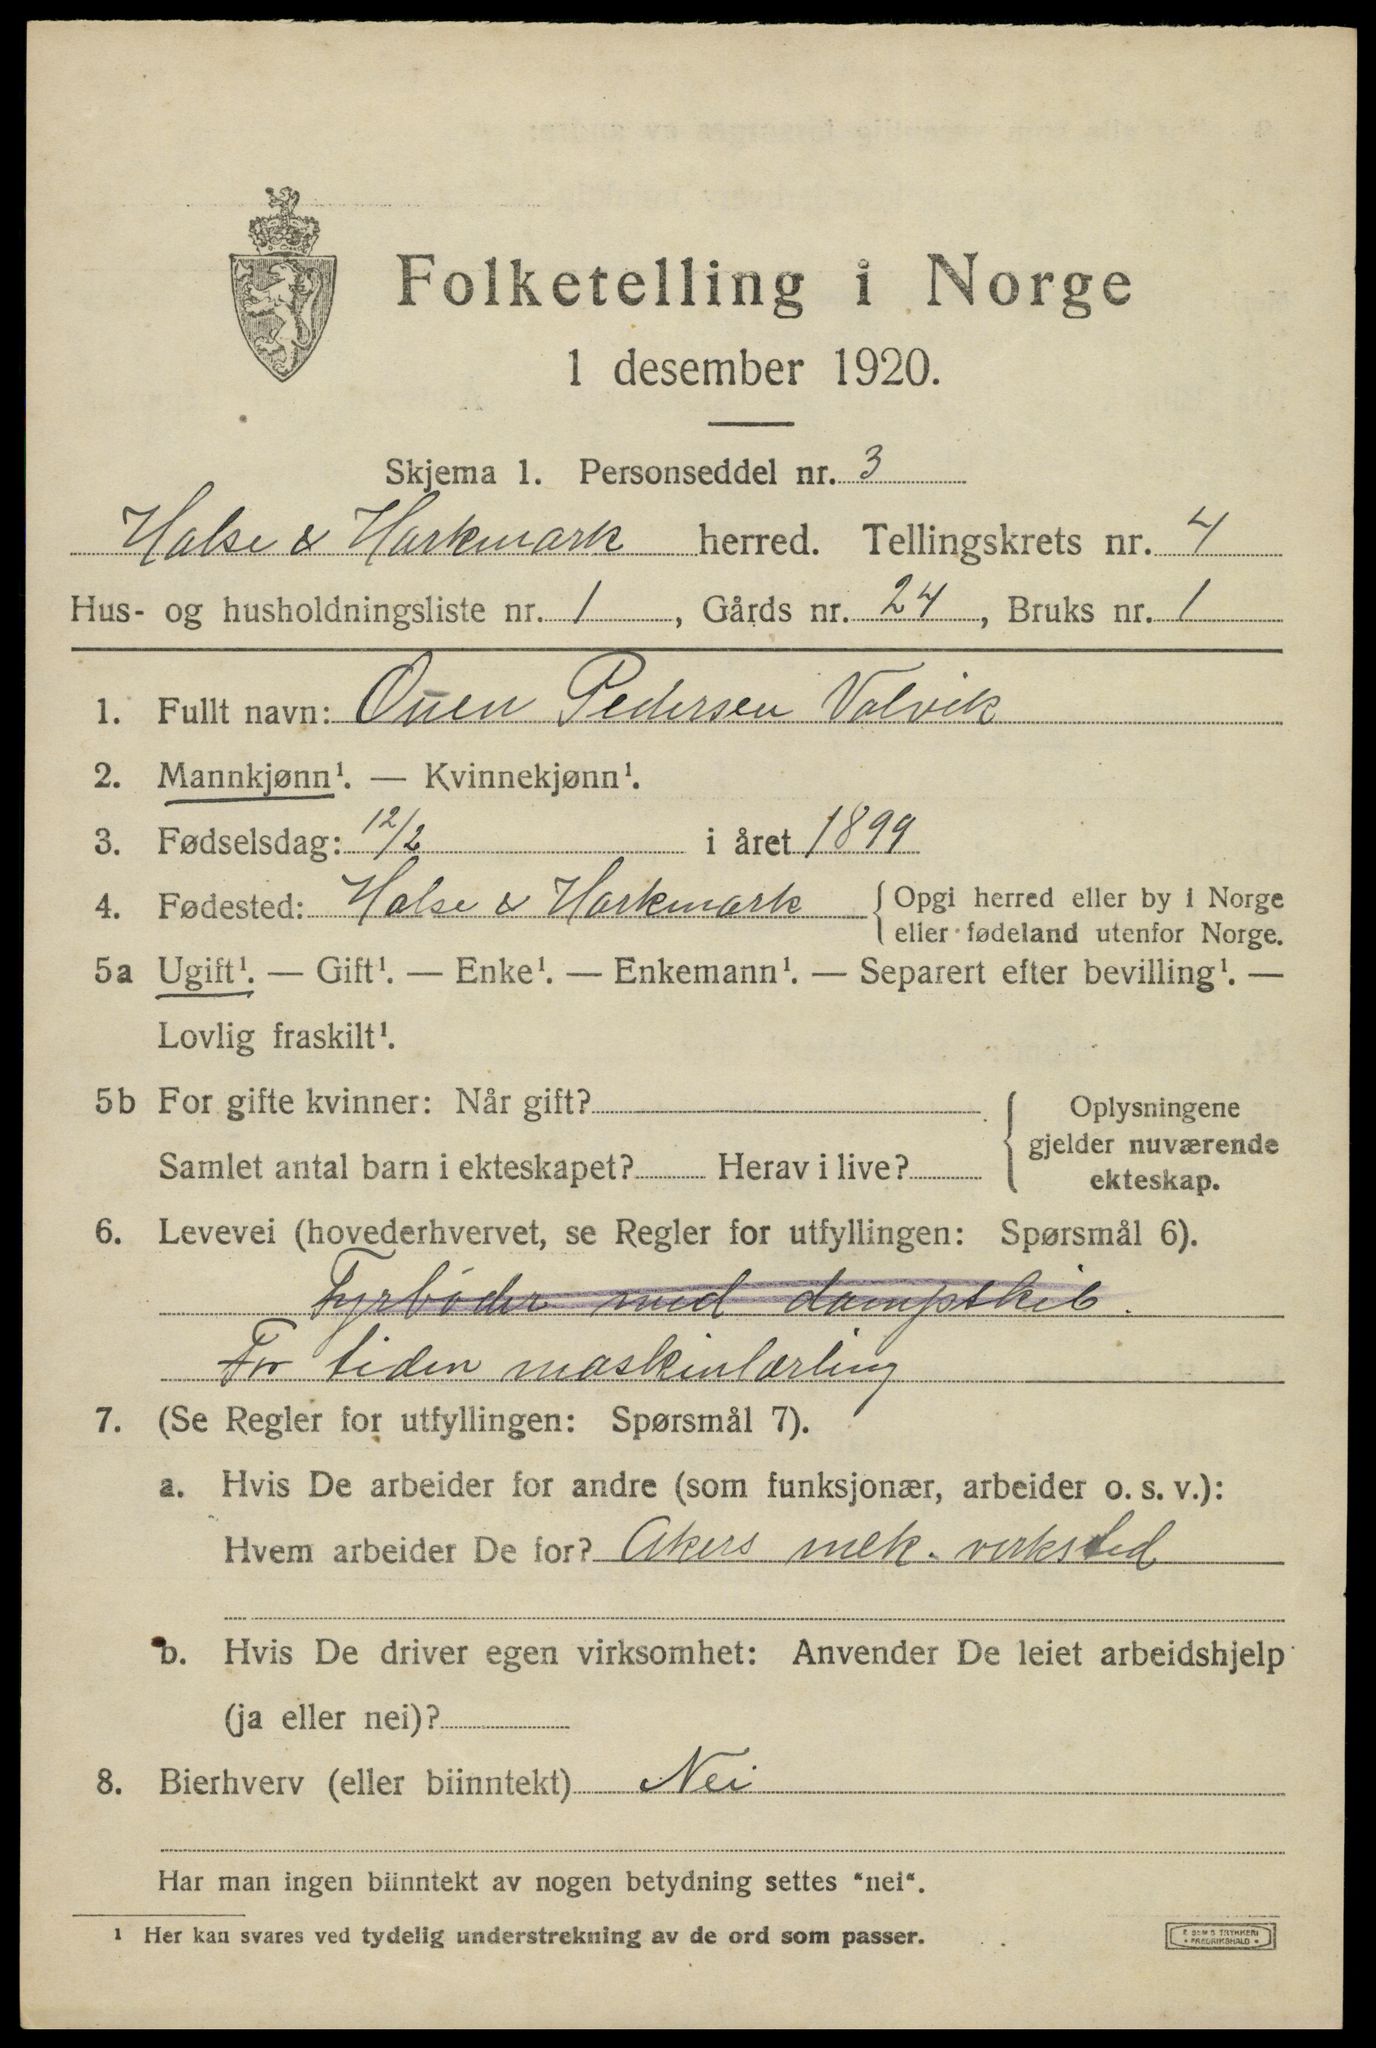 Folketelling i Norge
1 desember 1920.
Skjema 1. Personseddel nr. 3
Halse & Harkmark herred. Tellingskrets nr. 4
Hus- og husholdningsliste nr. 1, Gårds nr. 24, Bruks nr. 1
1. Fullt navn: Ouen Pedersen Valvik
2. Mannkjønn¹. — Kvinnekjønn¹.
3. Fødselsdag: 12/2 i året 1899
4. Fødested: Halse & Harkmark { Opgi herred eller by i Norge
eller fødeland utenfor Norge.
5a Ugift¹. — Gift¹. — Enke¹. — Enkemann¹. — Separert efter bevilling¹. —
Lovlig fraskilt¹.
5b For gifte kvinner: Når gift?
Samlet antal barn i ekteskapet? Herav i live?
Oplysningene
gjelder nuværende
ekteskap.
6. Levevei (hovederhvervet, se Regler for utfyllingen: Spørsmål 6).
Fyrbøder med dampskib.
For tiden maskinlærling
7. (Se Regler for utfyllingen: Spørsmål 7).
a. Hvis De arbeider for andre (som funksjonær, arbeider o. s. v.):
Hvem arbeider De for? Akers mek. verksted
b. Hvis De driver egen virksomhet: Anvender De leiet arbeidshjelp
(ja eller nei)?
8. Bierhverv (eller biinntekt) Nei
Har man ingen biinntekt av nogen betydning settes "nei".
¹ Her kan svares ved tydelig understrekning av de ord som passer.
TRYKKERI
FREDRIKSHALD